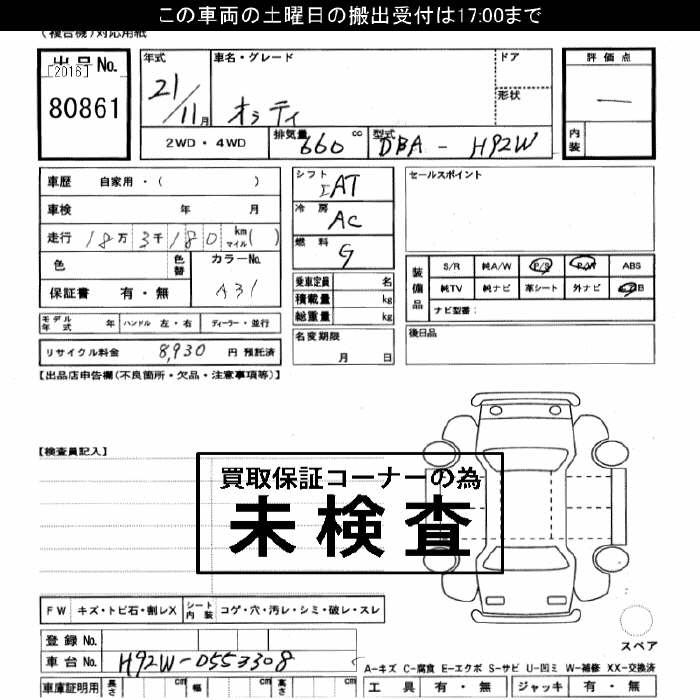 この車両の土曜日の搬出受付は17:00まで
(複合機)対応用紙
出品No.
[2016]
80861
年式
21/11月
車名・グレード
オッティ
ドア
形状
評価点
内装
2WD・4WD
排気量 660 cc
型式 DBA-H92W
車歴 自家用・( )
車検 年 月
走行 18万3千180 km マイル( )
色
色替
カラーNo.
A31
保証書 有・無
モデル年式 年 ハンドル 左・右 ディーラー・並行
リサイクル料金 8,930 円 預託済
シフト
IAT
冷房
AC
燃料
G
乗車定員 名
積載量 kg
総重量 kg
名変期限
月 日
セールスポイント
装備品
S/R 純A/W P/S P/W ABS
純TV 純ナビ 革シート 外ナビ A/B
ナビ型番:
後日品
【出品店申告欄(不良箇所・欠品・注意事項等)】
【検査員記入】
買取保証コーナーの為
未検査
FW キズ・トビ石・割レX シート内装 コゲ・穴・汚レ・シミ・破レ・スレ
登録No.
車台No. H92W-0553308
車庫証明用 長さ cm 幅 cm 高さ cm
スペア
A-キズ C-腐食 E-エクボ S-サビ U-凹ミ W-補修 XX-交換済
工具 有・無 ジャッキ 有・無